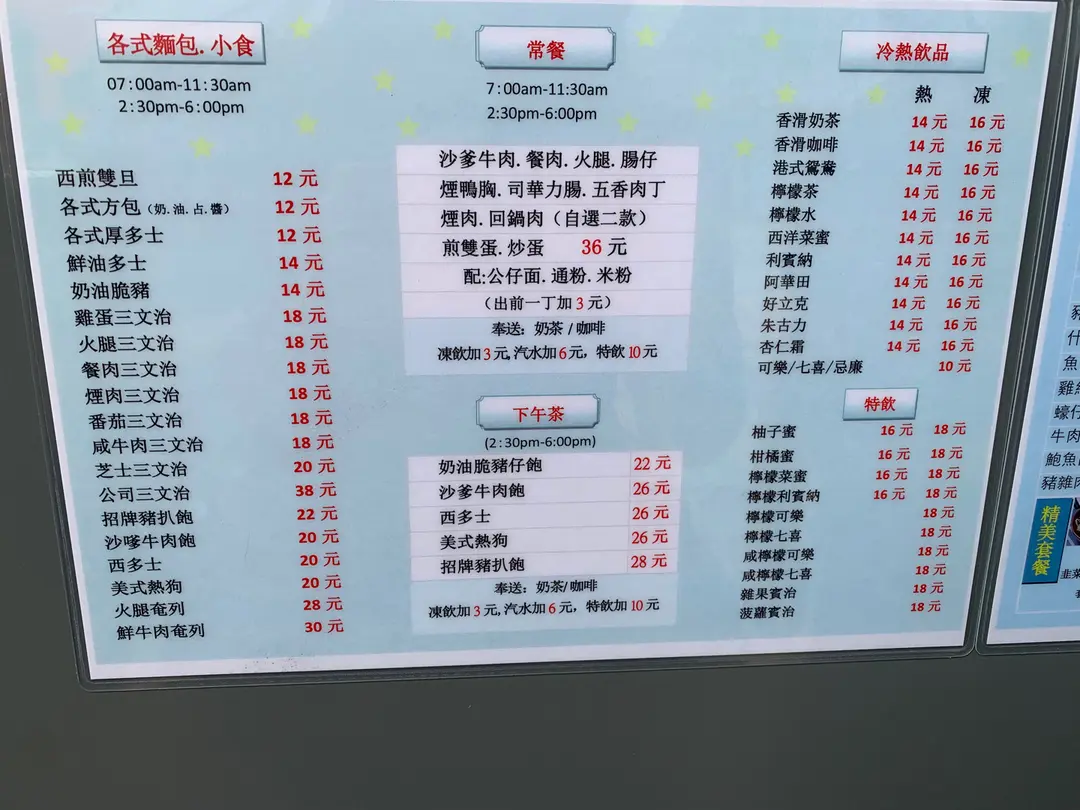 各式麵包.小食
07:00am-11:30am
2:30pm-6:00pm
西煎雙旦 12 元
各式方包(奶.油.占.醬) 12 元
各式厚多士 12 元
鮮油多士 14 元
奶油脆豬 14 元
雞蛋三文治 18 元
火腿三文治 18 元
餐肉三文治 18 元
煙肉三文治 18 元
番茄三文治 18 元
咸牛肉三文治 18 元
芝士三文治 20 元
公司三文治 38 元
招牌豬扒飽 22 元
沙嗲牛肉飽 20 元
西多士 20 元
美式熱狗 20 元
火腿奄列 28 元
鮮牛肉奄列 30 元
常餐
7:00am-11:30am
2:30pm-6:00pm
沙爹牛肉.餐肉.火腿.腸仔
煙鴨胸.司華力腸.五香肉丁
煙肉.回鍋肉（自選二款）
煎雙蛋.炒蛋 36 元
配:公仔面.通粉.米粉
（出前一丁加 3 元）
奉送：奶茶 / 咖啡
凍飲加 3 元, 汽水加 6 元，特飲 10 元
下午茶
(2:30pm-6:00pm)
奶油脆豬仔飽 22 元
沙爹牛肉飽 26 元
西多士 26 元
美式熱狗 26 元
招牌豬扒飽 28 元
奉送：奶茶/ 咖啡
凍飲加 3 元, 汽水加 6 元，特飲加 10 元
冷熱飲品
熱 凍
香滑奶茶 14 元 16 元
香滑咖啡 14 元 16 元
港式鴛鴦 14 元 16 元
檸檬茶 14 元 16 元
檸檬水 14 元 16 元
西洋菜蜜 14 元 16 元
利賓納 14 元 16 元
阿華田 14 元 16 元
好立克 14 元 16 元
朱古力 14 元 16 元
杏仁霜 14 元 16 元
可樂/七喜/忌廉 10 元
特飲
柚子蜜 16 元 18 元
柑橘蜜 16 元 18 元
檸檬菜蜜 16 元 18 元
檸檬利賓納 16 元 18 元
檸檬可樂 18 元
檸檬七喜 18 元
咸檸檬可樂 18 元
咸檸檬七喜 18 元
雜果賓治 18 元
菠蘿賓治 18 元
什
魚
蠔仔
牛肉
鮑魚
豬雜肉
精美套餐